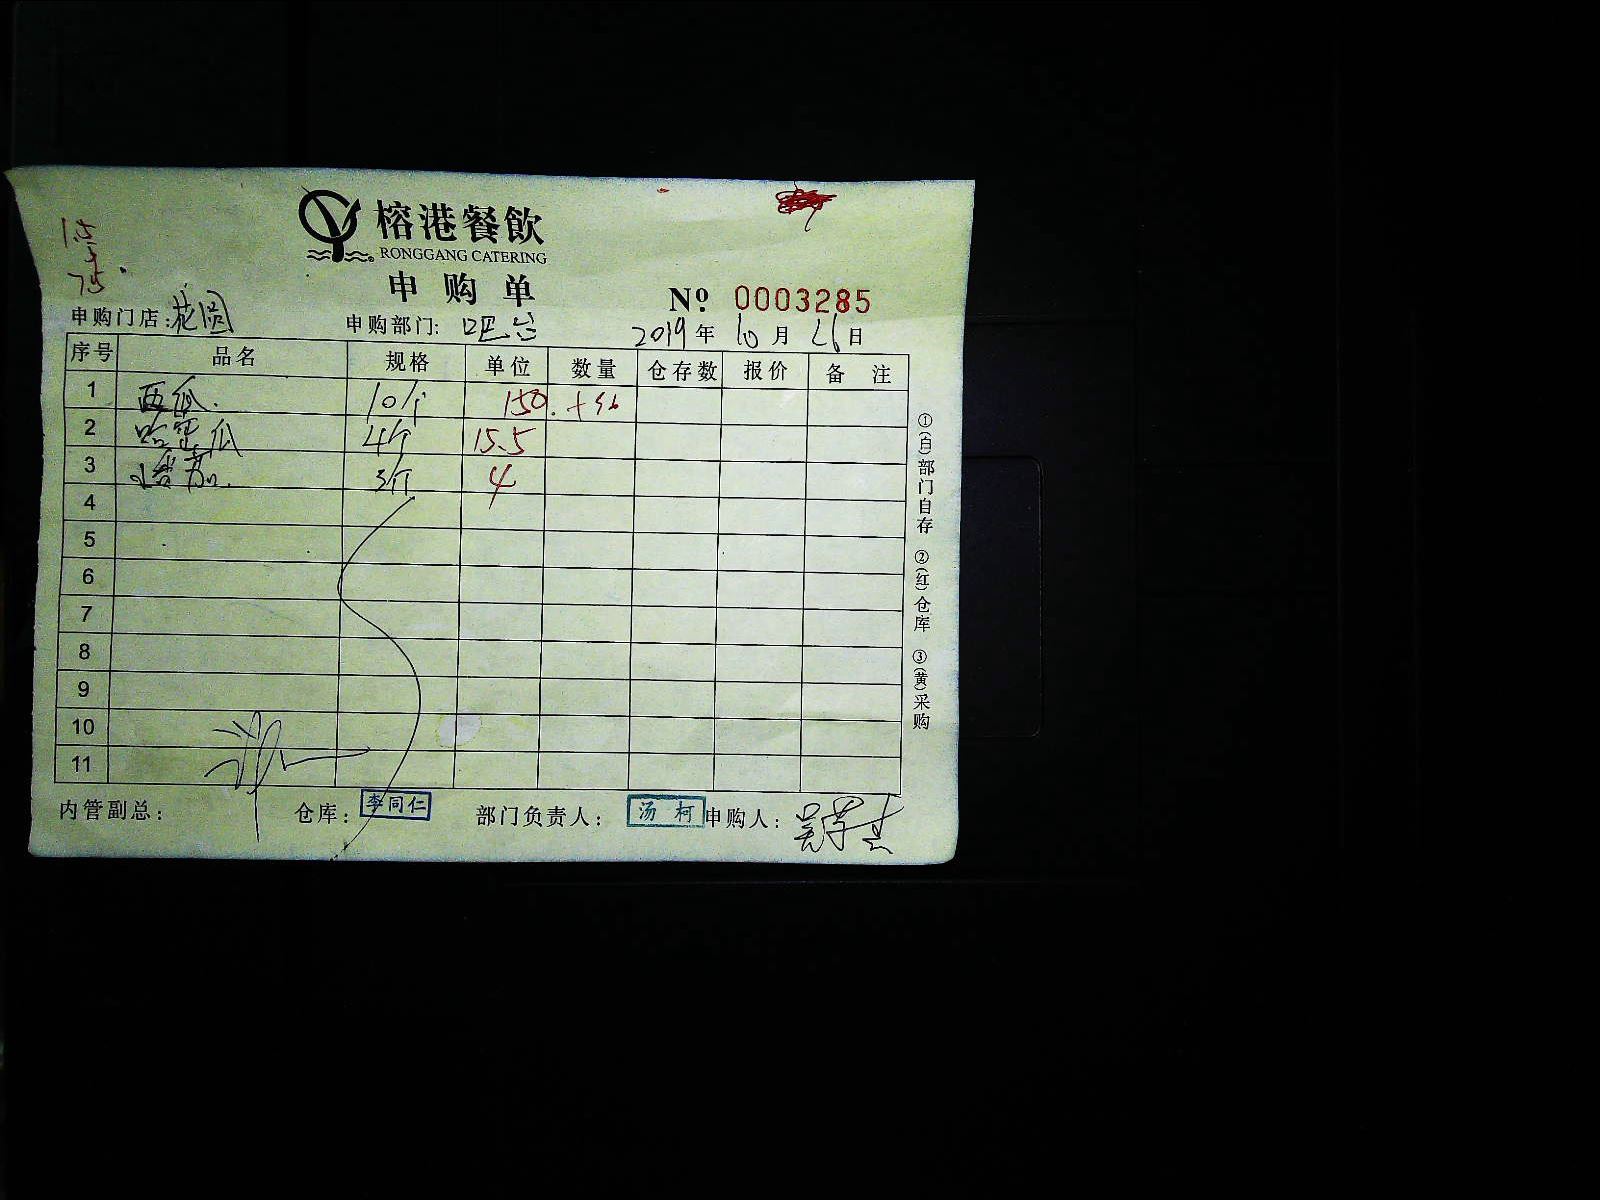 15
5
75
榕港餐飲
RONGGANG CATERING
申购单
Nº 0003285
申购门店: 花园 申购部门: 吧台 2019 年 10 月 26 日
序号 品名 规格 单位 数量 仓存数 报价 备 注
1 西瓜 10个 150
2 哈密瓜 4个 15.5
3 小番茄 3斤 4
4
5
6
7
8
9
10
11
①(白)部门自存 ②(红)仓库 ③(黄)采购
内管副总: 仓库: 李同仁 部门负责人: 汤柯 申购人: